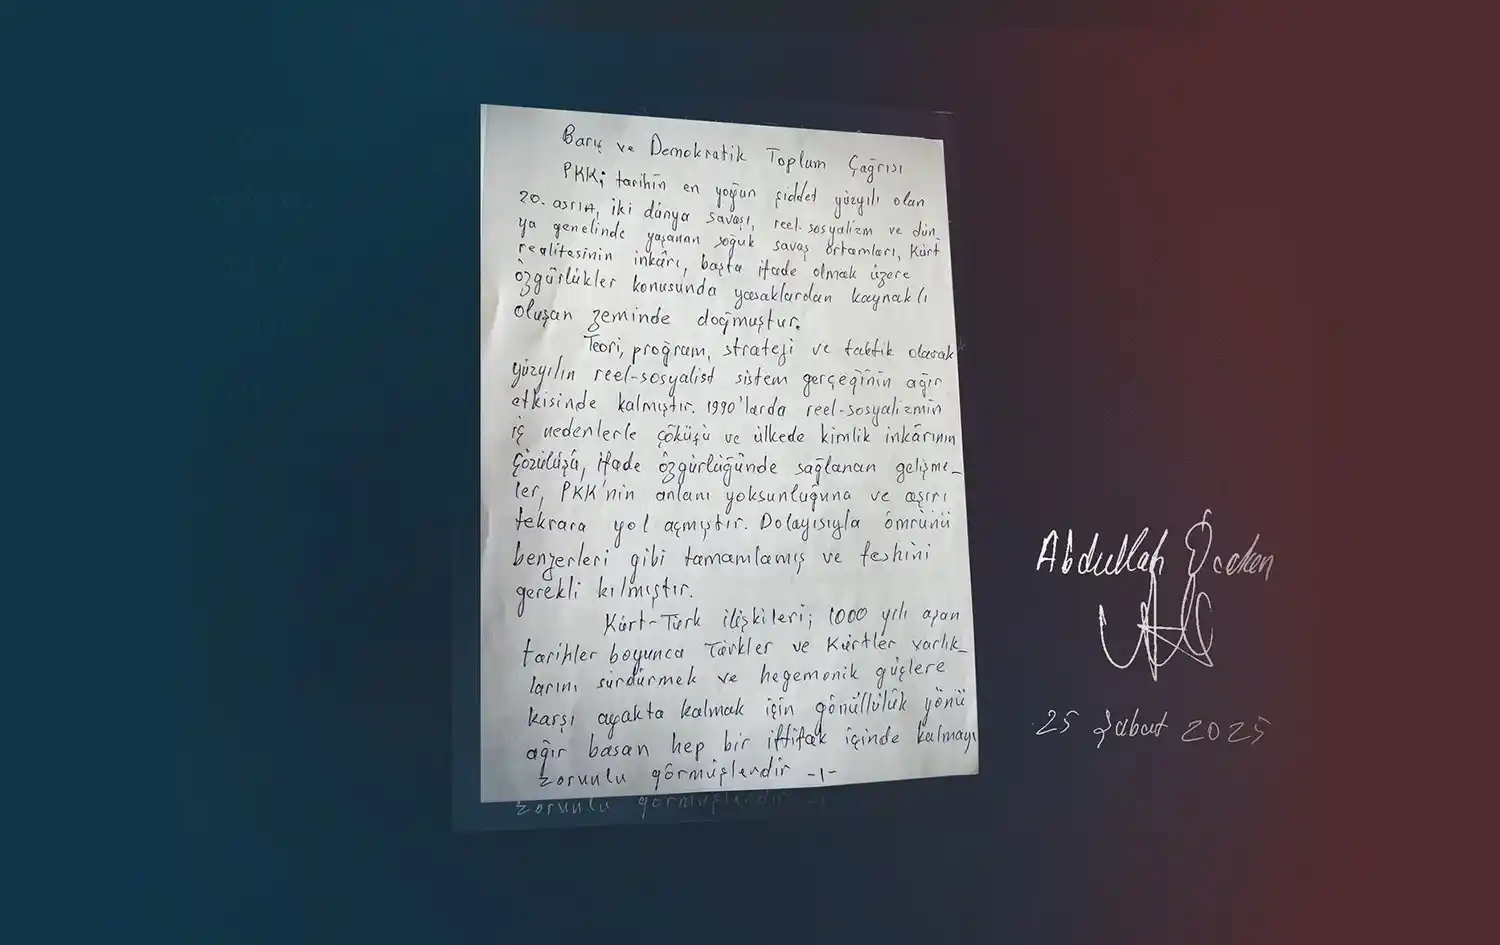 Barış ve Demokratik Toplum Çağrısı
PKK; tarihin en yoğun şiddet yüzyılı olan
20. asrın, iki dünya savaşı, reel-sosyalizm ve dün
ya genelinde yaşanan soğuk savaş ortamları, Kürt
realitesinin inkârı, başta ifade olmak üzere
özgürlükler konusunda yasaklardan kaynaklı
oluşan zeminde doğmuştur.
Teori, program, strateji ve taktik olarak
yüzyılın reel-sosyalist sistem gerçeğinin ağır
etkisinde kalmıştır. 1990'larda reel-sosyalizmin
iç nedenlerle çöküşü ve ülkede kimlik inkârının
çözülüşü, ifade özgürlüğünde sağlanan gelişme-
ler, PKK'nin anlam yoksunluğuna ve aşırı
tekrara yol açmıştır. Dolayısıyla ömrünü
benzerleri gibi tamamlamış ve feshini
gerekli kılmıştır.
Kürt-Türk ilişkileri; 1000 yılı aşan
tarihler boyunca Türkler ve Kürtler varlık-
larını sürdürmek ve hegemonik güçlere
karşı ayakta kalmak için gönüllülük yönü
ağır basan hep bir ittifak içinde kalmayı
zorunlu görmüşlerdir -1-
zorunlu görmüşlerdir -1-
Abdullah Öcalan
25 Şubat 2025